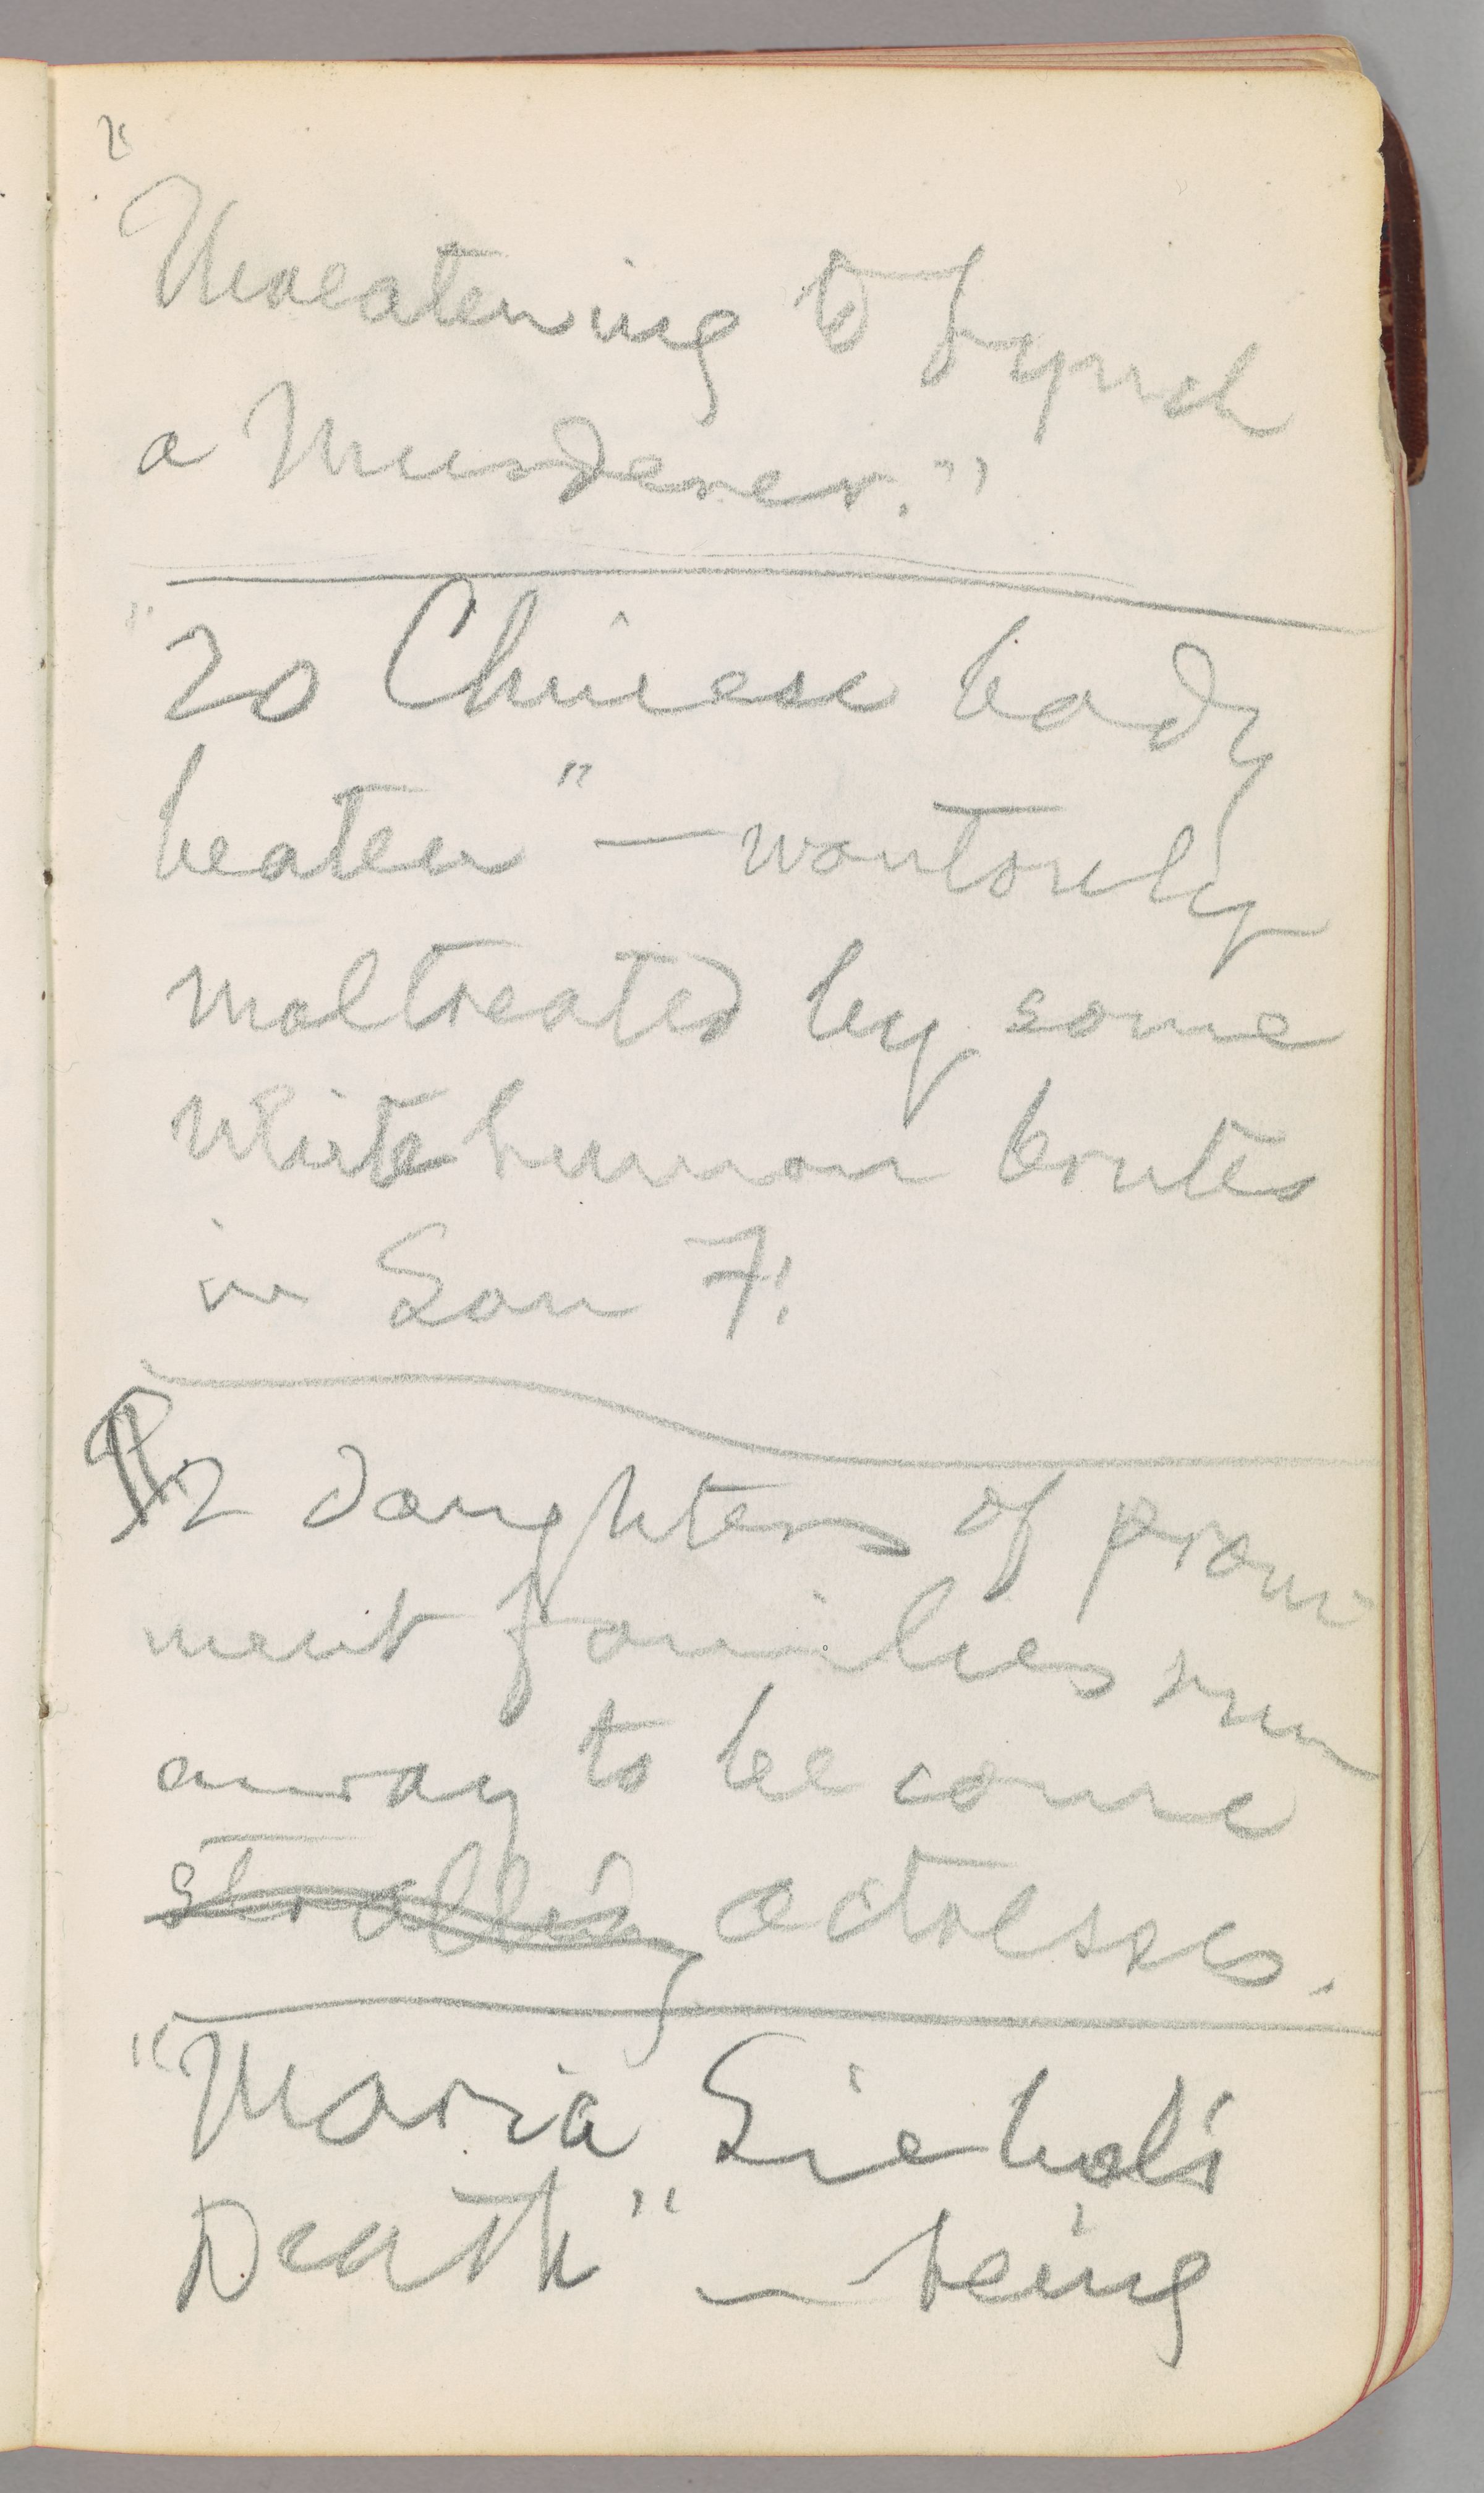 "Threatening to Lynch
a Murderer."
"20 Chinese body
beaten" — wantonly
maltreated by some
white human brutes
in San F!
2 daughters of promi
nent families run
away to become
strolling actresses.
"Maria Siebol's
Death" — being